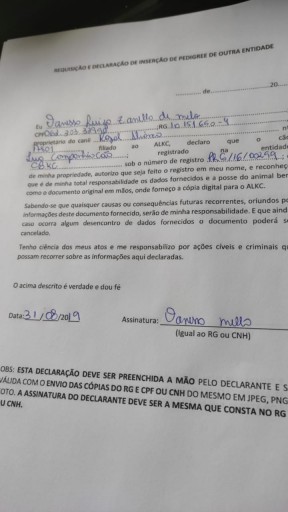 REQUISIÇÃO E DECLARAÇÃO DE INSERÇÃO DE PEDIGREE DE OUTRA ENTIDADE
de 20
Eu Zanello de melo
CPF , RG 10 151 650-4 n
proprietário do cão Royal cân
filiado ao ALKC, declaro que o
registrado na entidade
sob o número de registro PRG/16/00259
de minha propriedade, autorizo que seja feito o registro em meu nome, e reconheç
que é de minha total responsabilidade os dados fornecidos e a posse do animal bem
como o documento original em mãos, onde forneço a cópia digital para o ALKC.
Sabendo-se que quaisquer causas ou consequências futuras recorrentes, oriundos po
informações deste documento fornecido, serão de minha responsabilidade. E que aind
caso ocorra algum desencontro de dados fornecidos o documento poderá se
cancelado.
Tenho ciência dos meus atos e me responsabilizo por ações cíveis e criminais qu
possam recorrer sobre as informações aqui declaradas.
O acima descrito é verdade e dou fé
Data: 31/08/2019 Assinatura:
(Igual ao RG ou CNH)
OBS: ESTA DECLARAÇÃO DEVE SER PREENCHIDA A MÃO PELO DECLARANTE E S
VÁLIDA COM O ENVIO DAS CÓPIAS DO RG E CPF OU CNH DO MESMO EM JPEG, PNG
OTO. A ASSINATURA DO DECLARANTE DEVE SER A MESMA QUE CONSTA NO RG
U CNH.